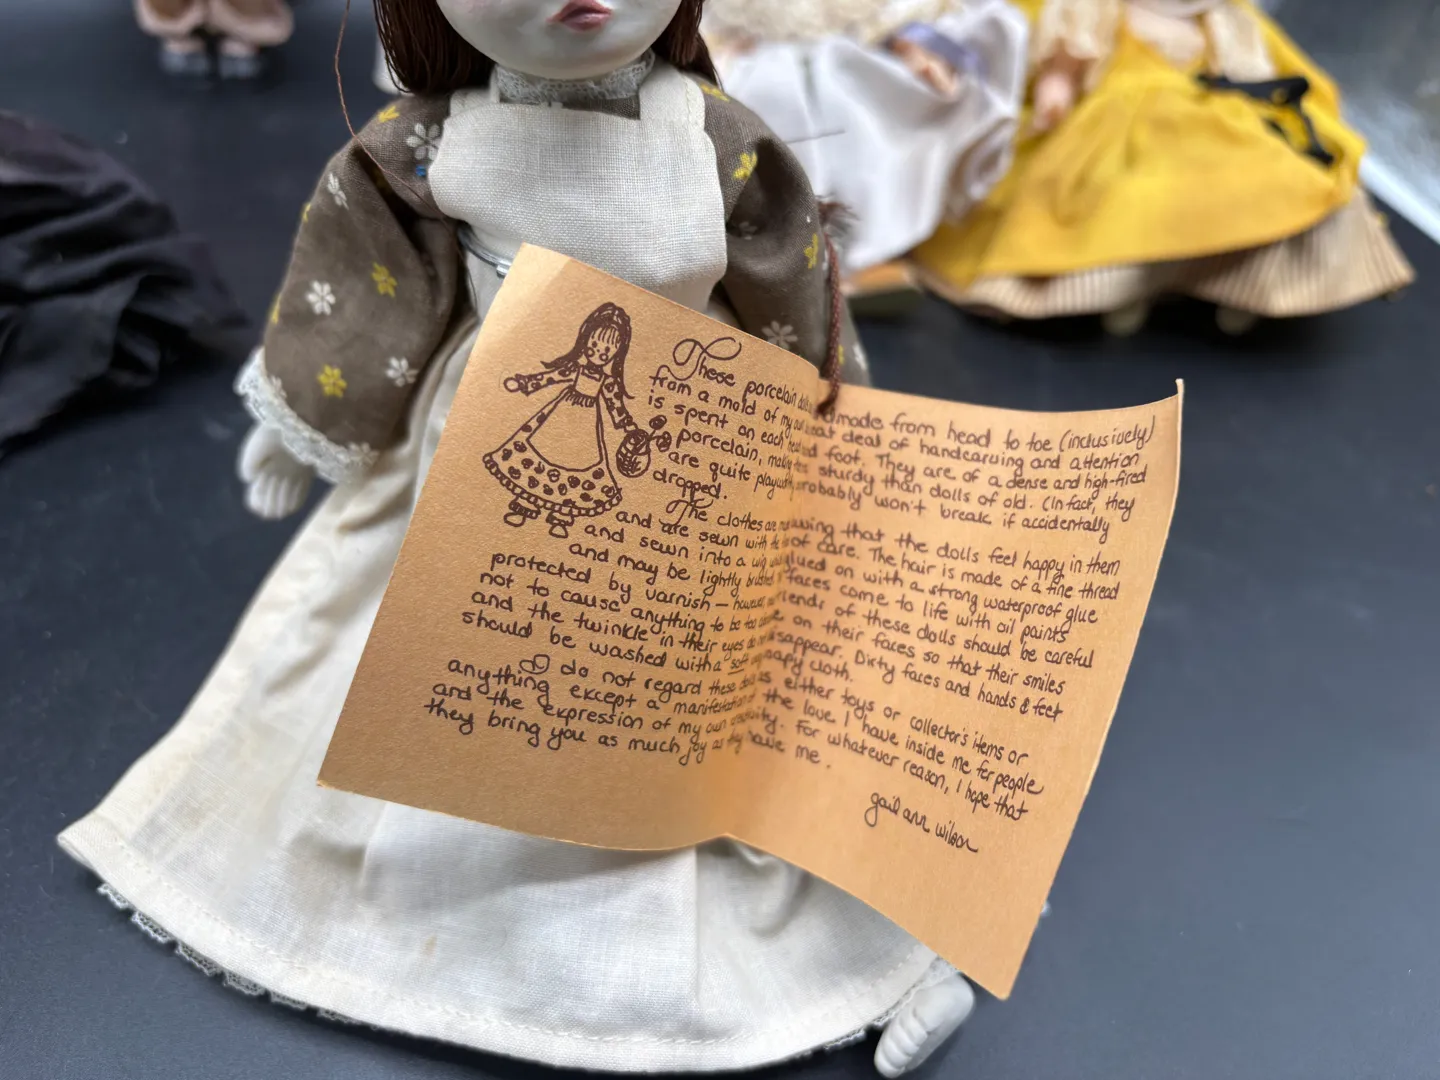 These porcelain dolls handmade from head to toe (inclusively)
from a mold of my own great deal of handcarving and attention
is spent on each head and foot. They are of a dense and high-fired
porcelain, making sturdy than dolls of old. (In fact, they
are quite probably won't break if accidentally
dropped.
The clothes are sewing that the dolls feel happy in them
and are sewn with of care. The hair is made of a fine thread
and sewn into a wig glued on with a strong waterproof glue
and may be lightly brushed faces come to life with oil paints
protected by varnish — however friends of these dolls should be careful
not to cause anything to be too on their faces so that their smiles
and the twinkle in their eyes do not disappear. Dirty faces and hands & feet
should be washed with a soft soapy cloth.
I do not regard these dolls as either toys or collector's items or
anything except a manifestation of the love I have inside me for people
and the expression of my own creativity. For whatever reason, I hope that
they bring you as much joy as they have me.
gail ann wilson